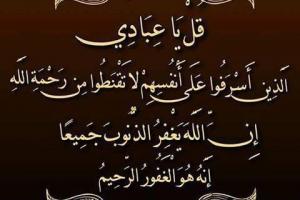 قُلْ يَا عِبَادِي
الَّذِينَ أَسْرَفُوا عَلَى أَنْفُسِهِمْ لَا تَقْنَطُوا مِن رَحْمَةِ اللَّهِ
إِنَّ اللَّهَ يَغْفِرُ الذُّنُوبَ جَمِيعًا
إِنَّهُ هُوَ الْغَفُورُ الرَّحِيمُ